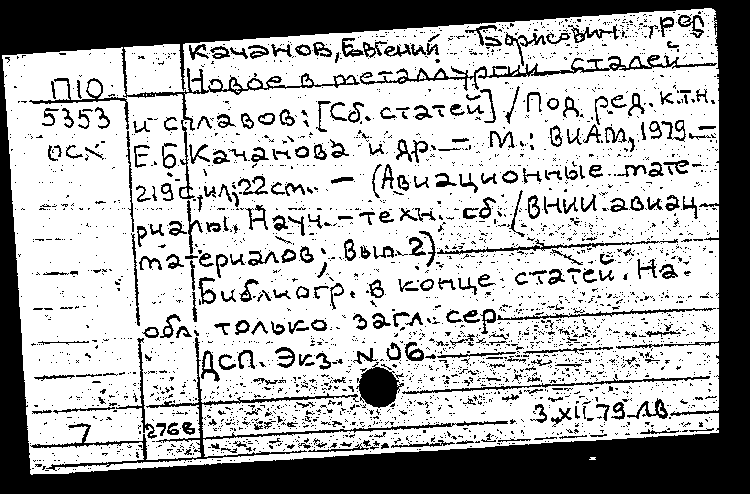 Качанов, Евгений Борисович, ред
П10 Новое в металлургии сталей
5353 и сплавов: [Сб. статей] / Под ред. к.т.н.
осх Е.Б. Качанова и др. – М.: ВИАМ, 1979. –
219с, ил; 22см. – (Авиационные мате-
риалы. Науч.-техн. сб. / ВНИИ авиац.
материалов; Вып. 2)
Библиогр. в конце статей. На
обл. только загл. сер.
ДСП. Экз. N 06
3.XII.79 ЛВ
7 2768